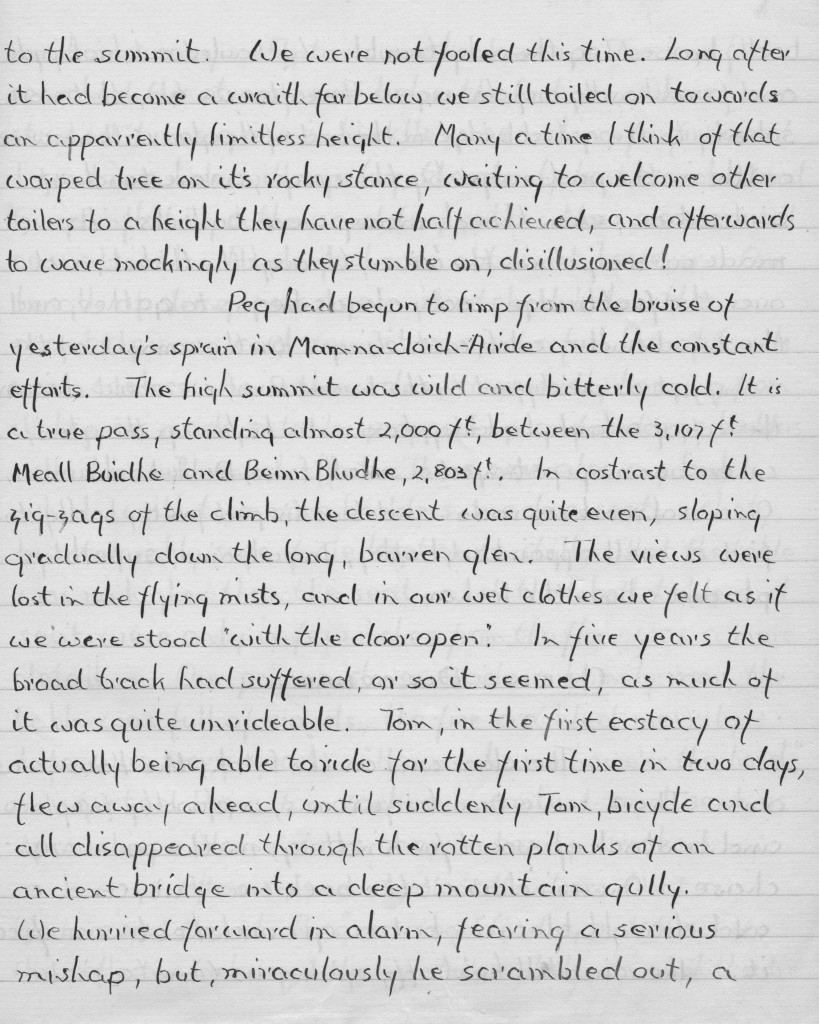 to the summit. We were not fooled this time. Long after
it had become a wraith far below we still toiled on towards
an apparriently limitless height. Many a time I think of that
warped tree on it's rocky stance, waiting to welcome other
toilers to a height they have not half achieved, and afterwards
to wave mockingly as they stumble on, disillusioned!
Peg had begun to limp from the bruise of
yesterday's sprain in Mam-na-cloich-Airde and the constant
efforts. The high summit was wild and bitterly cold. It is
a true pass, standing almost 2,000 ft, between the 3,107 ft
Meall Buidhe and Beinn Bhudhe, 2,803 ft. In costrast to the
zig-zags of the climb, the descent was quite even, sloping
gradually down the long, barren glen. The views were
lost in the flying mists, and in our wet clothes we felt as if
we were stood "with the door open". In five years the
broad track had suffered, or so it seemed, as much of
it was quite unrideable. Tom, in the first ecstacy of
actually being able to ride for the first time in two days,
flew away ahead, until suddenly Tom, bicycle and
all disappeared through the rotten planks of an
ancient bridge into a deep mountain gully.
We hurried forward in alarm, fearing a serious
mishap, but, miraculously he scrambled out, a